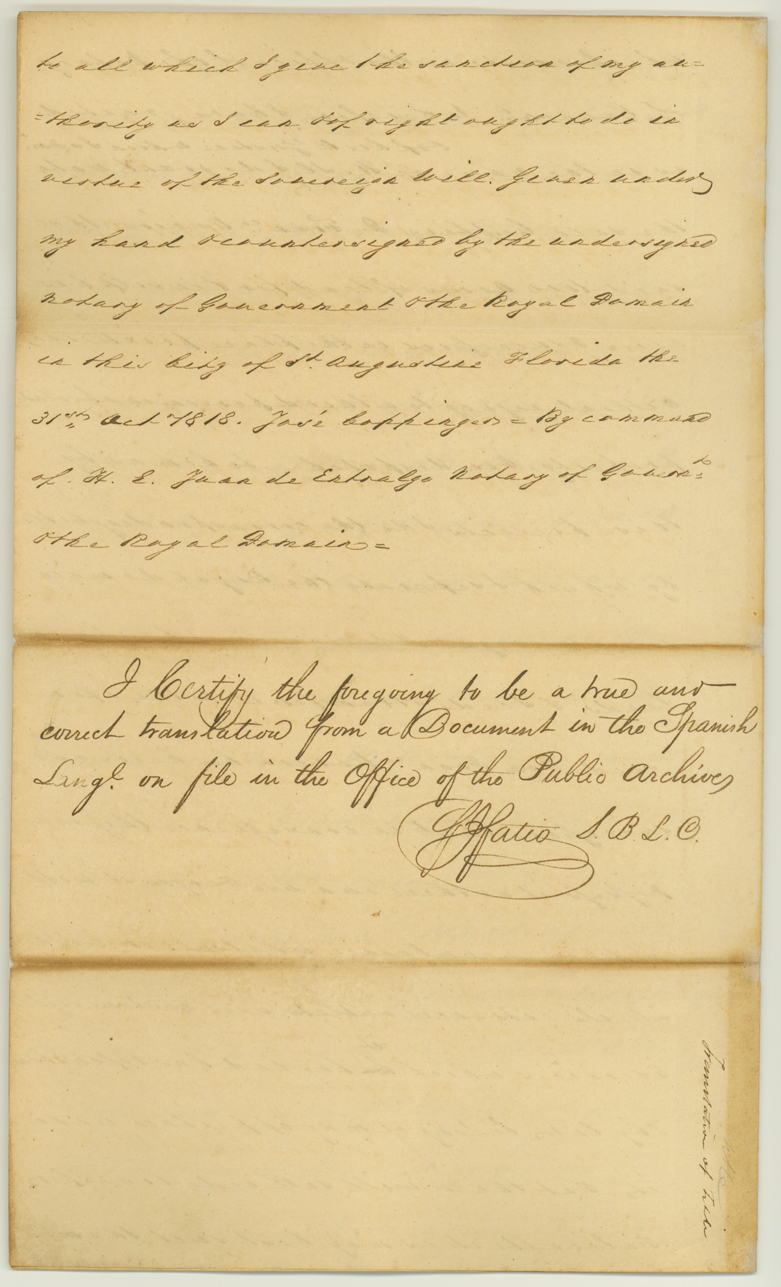 to all which I give the sanction of my au=
=thority as I can & of right ought to do in
virtue of the Sovereign Will. Given under
my hand & countersigned by the undersigned
notary of Government & the Royal Domain
in this City of St. Augustine Florida the
31st Oct 1818. José Coppinger = By command
of H. E. Juan de Entralgo Notary of Govern.t
& the Royal Domain =
I Certify the foregoing to be a true and
correct translation from a Document in the Spanish
Lange. on file in the Office of the Public Archives
Fatio S. B. L. C.
Translation of Title